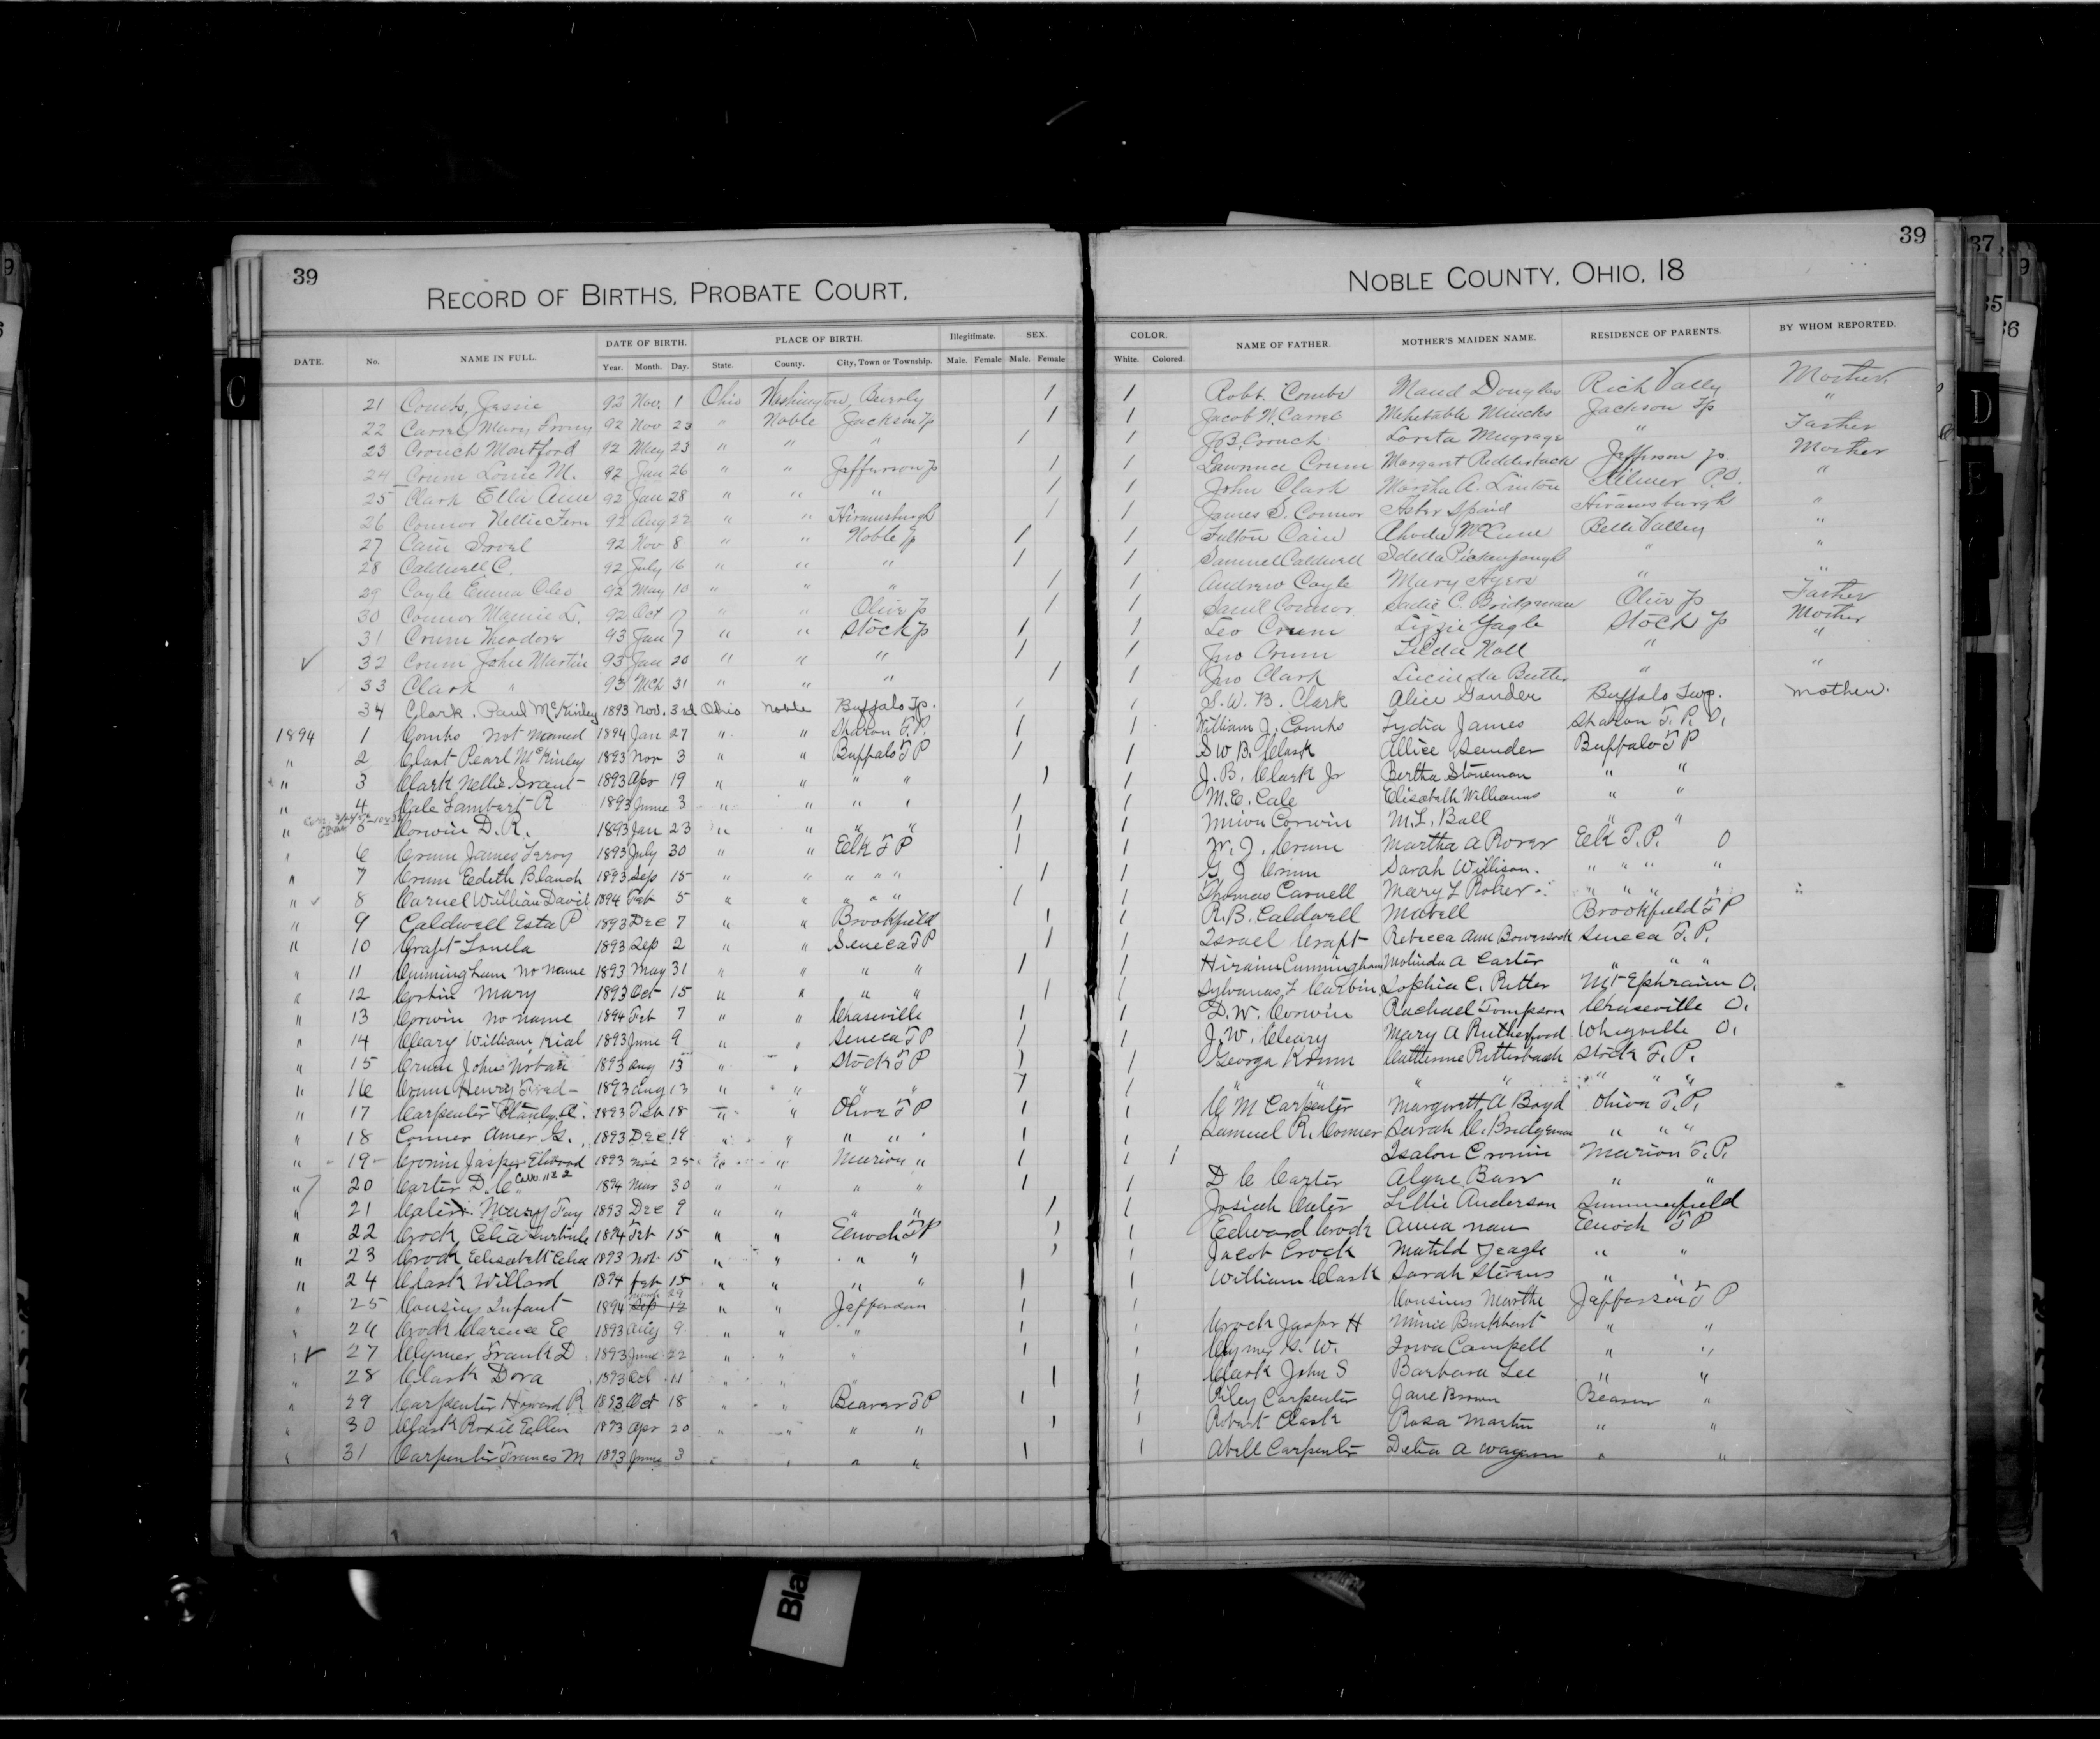 39
RECORD OF BIRTHS, PROBATE COURT,
NOBLE COUNTY, OHIO, 18
39
DATE. No. NAME IN FULL. DATE OF BIRTH. Year. Month. Day. PLACE OF BIRTH. State. County. City, Town or Township. Illegitimate. Male. Female SEX. Male. Female COLOR. White. Colored. NAME OF FATHER. MOTHER'S MAIDEN NAME. RESIDENCE OF PARENTS. BY WHOM REPORTED.
21 Combs, Jessie 92 Nov. 1 Ohio Washington, 1 1 Robt. Combs Maud Douglas Rich Vally Mother
22 Mary 92 Nov 23 " Noble Jackson Tp 1 1 Jacob N. Mehetable Jackson Tp "
23 Crouch Montford 92 May 23 " " " 1 1 J B. Crouch Loreta " Father
24 Crum Louie M. 92 Jan 26 " " Jefferson Tp 1 1 Lawrence Crum Margaret Jefferson Tp. Mother
25 Clark Ella 92 Jan 28 " " " 1 1 John Clark Martha A. Linton P.O. "
26 Connor Nellie Fern 92 Aug 22 " " Hiramsburgh 1 1 James S. Connor Spaid Hiramsburgh "
27 Cain 92 Nov 8 " " Noble Tp 1 1 Fulton Cain Belle Valley "
28 Caldwell C. 92 July 16 " " " 1 1 Samuel Caldwell Idella " "
29 Coyle Emma Cleo 92 May 10 " " " 1 1 Andrew Coyle Mary Ayers " "
30 Connor Mamie L. 92 Oct 17 " " Olive Tp 1 1 Saml Connor Sadie C. Bridgman Olive Tp Father
31 Crum Theodore 93 Jan 7 " " Stock Tp 1 1 Leo Crum Lizzie Yagle Stock Tp Mother
32 Crum John Martin 93 Jan 20 " " " 1 1 Jno Crum Tilda Noll " "
33 Clark " 93 Mch 31 " " " 1 1 Jno Clark Lucinda Butler " "
34 Clark. Paul McKinley 1893 Nov. 3rd Ohio Noble Buffalo Tp. 1 1 S. W. B. Clark Alice Gander Buffalo Twp. mother.
1894 1 Combs not named 1894 Jan 27 " " Sharon T.P. 1 1 William J. Combs Lydia James Sharon T. P. O.
" 2 Pearl McKinley 1893 Nov 3 " " Buffalo T P 1 1 S W B. Clark Allice Buffalo T P
" 3 Clark Nellie Grant 1893 Apr 19 " " " " 1 1 J. B. Clark Jr Bertha Stoneman " "
" 4 Cale Lambert R 1893 June 3 " " " " 1 1 M. E. Cale Elisabeth Williams " "
" 5 Corwin D. R. 1893 Jan 23 " " " " 1 1 Corwin M. L. Ball " "
" 6 Crum James Leroy 1893 July 30 " " Elk T P 1 1 W. J. Crum Martha A Elk T. P. O
" 7 Crum Edith Blanch 1893 Sep 15 " " " " " 1 1 G J Crum Sarah Willison. " " " "
" 8 Carnel William David 1894 Feb 5 " " " " " 1 1 Thomas Carnell Mary L " " " "
" 9 Caldwell Esta P 1893 Dec 7 " " Brookfield 1 1 R. B. Caldwell Mabell Brookfield T P
" 10 Craft Louela 1893 Sep 2 " " Seneca T P 1 1 Israel Craft Rebecca Ann Bowersock Seneca T. P.
" 11 Cunningham no name 1893 May 31 " " " " 1 1 Hiraim Cunningham Molinda A Carter " " "
" 12 Mary 1893 Oct 15 " " " " 1 1 Sylvanus L Sophia C. Ritter Mt Ephraim O.
" 13 Corwin no name 1894 Feb 7 " " Chaseville 1 1 D. W. Corwin Rachael Tompson Chaseville O.
" 14 Cleary William Kial 1893 June 9 " " Seneca T P 1 1 J. W. Cleary Mary A Rutherford Whigville O.
" 15 Crum John 1893 Aug 13 " " Stock T P 1 1 George Krum Cathrine Stock T. P.
" 16 Crum Henry 1893 Aug 13 " " " " 1 1 " " " " " " "
" 17 Carpenter 1893 Feb 18 " " Olive T P 1 1 C M Carpenter Margarett A Boyd Olive T. P.
" 18 Conner Amer G. 1893 Dec 19 " " " " 1 1 Samuel R. Conner Sarah C. Bridgeman " " "
" 19 Cronin Jasper Elwood 1893 25 " " Marion " 1 1 1 Isalon Cronin Marion T. P.
" 20 Carter D. C. 1894 Mar 30 " " " " 1 1 D C Carter Barr " "
" 21 Mary Fay 1893 Dec 9 " " " " 1 1 Josiah Lillie Anderson Summerfield
" 22 Crock Celia 1894 Feb 15 " " Enoch T P 1 1 Edward Crock Anna Enoch T P
" 23 Crock Elisabeth Celia 1893 Nov 15 " " " " 1 1 Jacob Crock Matild Yeagle " "
" 24 Clark Willard 1894 Feb 15 " " " " 1 1 William Clark Sarah Stevens " "
" 25 Cousins Infant 1894 March 29 " " Jefferson 1 1 Cousins Martha Jefferson T P
" 26 Crock Clarence E 1893 Aug 9 " " " 1 1 Crock Jasper H Minie Burkhart " "
" 27 Clymer Frank D 1893 June 22 " " " 1 1 Clymer W. Iowa Campell " "
" 28 Clark Dora 1893 Oct 11 " " " 1 1 Clark John S Barbara Lee " "
" 29 Carpenter Howard R 1893 Oct 18 " " Beaver T P 1 1 Riley Carpenter Jane Brown Beaver "
" 30 Clark Roxie Ellen 1893 Apr 20 " " " " 1 1 Robert Clark Rosa Martin " "
" 31 Carpenter Frances M 1893 June 3 " " " " 1 1 Abell Carpenter Delia A " "
C
D
E
37